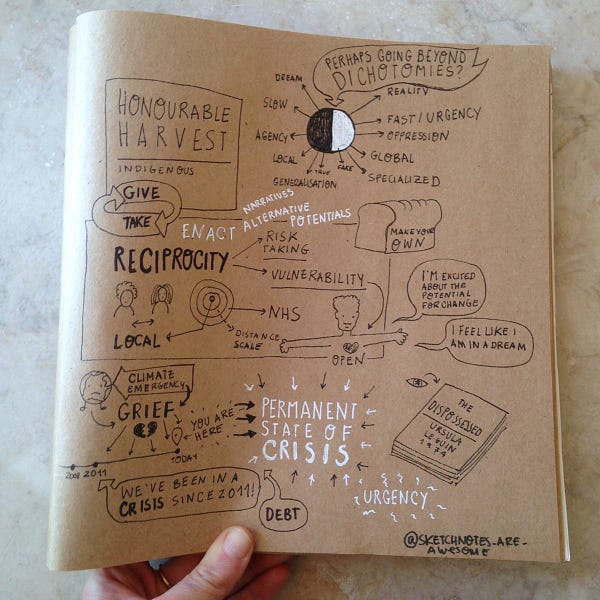 PERHAPS GOING BEYOND
DICHOTOMIES?
DREAM
REALITY
SLOW
FAST/URGENCY
AGENCY
OPPRESSION
LOCAL
TRUE
FAKE
GLOBAL
GENERALISATION
SPECIALIZED
HONOURABLE
HARVEST
INDIGENOUS
GIVE
TAKE
ENACT ALTERNATIVE
NARRATIVES
POTENTIALS
RECIPROCITY
RISK
TAKING
VULNERABILITY
NHS
DISTANCE
SCALE
LOCAL
MAKE YOUR
OWN
OPEN
I'M EXCITED
ABOUT THE
POTENTIAL
FOR CHANGE
I FEEL LIKE I
AM IN A DREAM
CLIMATE
EMERGENCY
GRIEF
YOU ARE
HERE
TODAY
2008 2011
WE'VE BEEN IN A
CRISIS SINCE 2011!
PERMANENT
STATE OF
CRISIS
URGENCY
DEBT
THE
DISPOSSESSED
URSULA
LE GUIN
1974
@SKETCHNOTES-ARE-
AWESOME